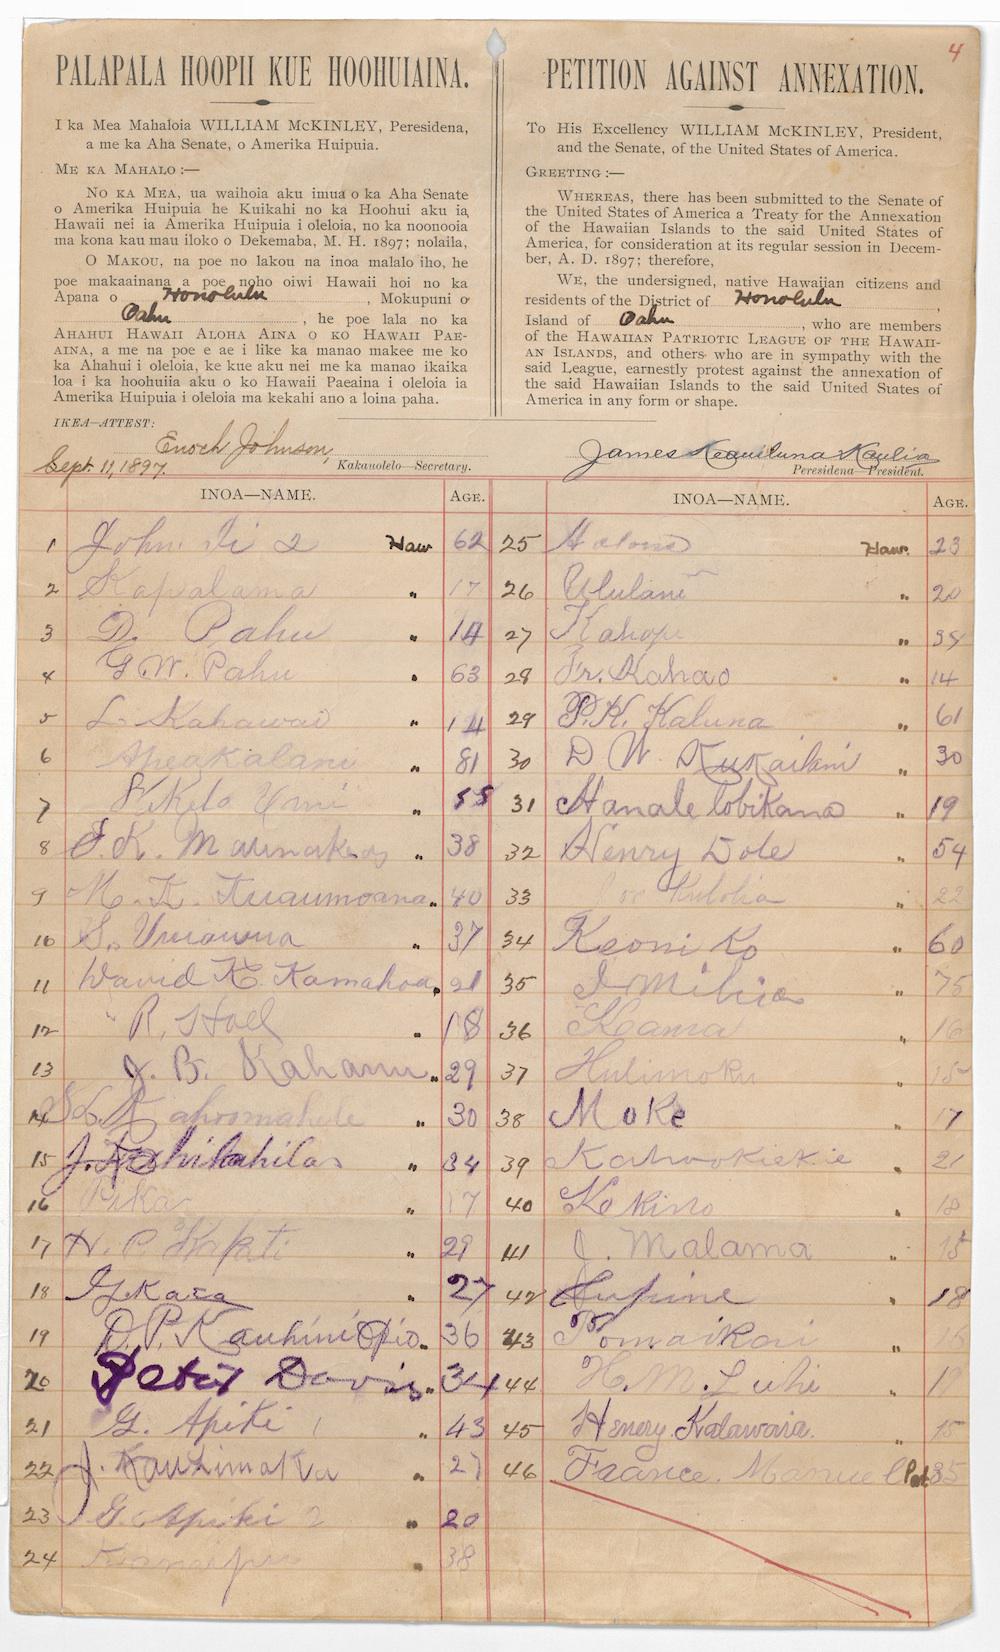 4
PALAPALA HOOPII KUE HOOHUIAINA.
I ka Mea Mahaloia WILLIAM McKINLEY, Peresidena,
a me ka Aha Senate, o Amerika Huipuia.
ME KA MAHALO :—
NO KA MEA, ua waihoia aku imua o ka Aha Senate
o Amerika Huipuia he Kuikahi no ka Hoohui aku ia
Hawaii nei ia Amerika Huipuia i oleloia, no ka noonooia
ma kona kau mau iloko o Dekemaba, M. H. 1897; nolaila,
O MAKOU, na poe no lakou na inoa malalo iho, he
poe makaainana a poe noho oiwi Hawaii hoi no ka
Apana o Honolulu, Mokupuni o
Oahu, he poe lala no ka
AHAHUI HAWAII ALOHA AINA O KO HAWAII PAE-
AINA, a me na poe e ae i like ka manao makee me ko
ka Ahahui i oleloia, ke kue aku nei me ka manao ikaika
loa i ka hoohuiia aku o ko Hawaii Paeaina i oleloia ia
Amerika Huipuia i oleloia ma kekahi ano a loina paha.
PETITION AGAINST ANNEXATION.
To His Excellency WILLIAM McKINLEY, President,
and the Senate, of the United States of America.
GREETING :—
WHEREAS, there has been submitted to the Senate of
the United States of America a Treaty for the Annexation
of the Hawaiian Islands to the said United States of
America, for consideration at its regular session in Decem-
ber, A. D. 1897; therefore,
WE, the undersigned, native Hawaiian citizens and
residents of the District of Honolulu,
Island of Oahu, who are members
of the HAWAIIAN PATRIOTIC LEAGUE OF THE HAWAII-
AN ISLANDS, and others who are in sympathy with the
said League, earnestly protest against the annexation of
the said Hawaiian Islands to the said United States of
America in any form or shape.
IKEA—ATTEST:
Sept. 11, 1897. Enoch Johnson,
Kakauolelo—Secretary.
James Keauiluna Kaulia
Peresidena—President.
INOA—NAME. AGE.
1 John Ii 2 Haw 62
2 Kapalama " 17
3 D. Pahu " 14
4 G. W. Pahu " 63
5 L. Kahawai " 14
6 Apeakalani " 81
7 " 55
8 J. K. Maunakea " 38
9 M. K. Kuaumoana " 40
10 S. " 37
11 David K. Kamahoa " 21
12 R. Hoel " 18
13 J. B. Kahanu " 29
14 " 30
15 J. " 34
16 Pika " 17
17 H. P. " 29
18 " 27
19 D. P. Kauhini Opio " 36
20 Peter Davis " 34
21 G. Apiki " 43
22 J. Kaulimaka " 27
23 G. Apiki 2 " 20
24 " 38
INOA—NAME. AGE.
25 Haw. 23
26 Ululani " 20
27 Kahope "
28 Jr. Kahao " 14
29 P. K. Kaluna " 61
30 D W. " 30
31 Hanale " 19
32 Henry Dole " 54
33 " 22
34 Keoni Ko " 60
35 " 75
36 Keama " 16
37 Hulimoku " 15
38 Moke " 17
39 Kahookiekie " 21
40 Kekino " 18
41 J. Malama " 15
42 " 18
43 Pomaikai "
44 H. M. Luhi "
45 Henry Kalawaia. " 15
46 Manuel Pot. 35